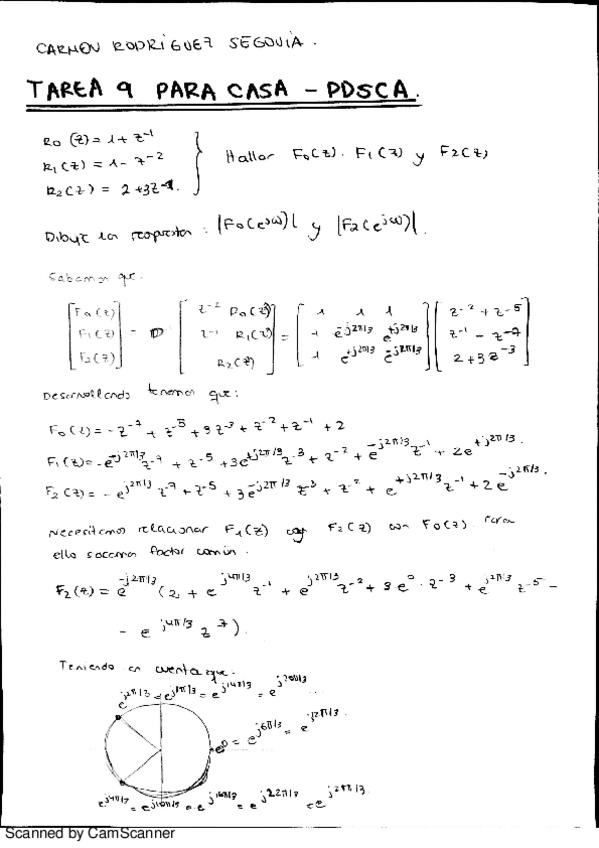 CARMEN RODRIGUEZ SEGOVIA.
TAREA 9 PARA CASA - PDSCA.
R0(z) = 1 + z^-1
R1(z) = 1 - z^-2 } Hallar F0(z). F1(z) y F2(z)
R2(z) = 2 + 3z^-1.
Dibuje la respuesta: |F0(e^jω)| y |F2(e^jω)|.
Sabemos que:
[F0(z) F1(z) F2(z)] = D [z^-2 R0(z) z^-1 R1(z) R2(z)] = [1 1 1; 1 e^-j2π/3 e^+j2π/3; 1 e^+j2π/3 e^-j2π/3] [z^-2 + z^-5; z^-1 - z^-7; 2 + 3z^-3]
Desarrollando tenemos que:
F0(z) = - z^-7 + z^-5 + 3z^-3 + z^-2 + z^-1 + 2
F1(z) = - e^-j2π/3 z^-7 + z^-5 + 3e^+j2π/3 z^-3 + z^-2 + e^-j2π/3 z^-1 + 2e^+j2π/3.
F2(z) = - e^j2π/3 z^-7 + z^-5 + 3e^-j2π/3 z^-3 + z^-2 + e^+j2π/3 z^-1 + 2e^-j2π/3.
Necesitamos relacionar F1(z) F2(z) con F0(z) Para
ello sacamos factor común.
F2(z) = e^-j2π/3 (2 + e^j4π/3 z^-1 + e^j2π/3 z^-2 + 3e^0 · z^-3 + e^j2π/3 z^-5 -
- e^j4π/3 z^-7).
Teniendo en cuenta que:
e^j2π/3 = e^j8π/3 = e^j14π/3 = e^j20π/3
e^0 = e^j6π/3 =
e^j4π/3 = e^j10π/3 = e^j16π/3 = e^j22π/3 = e^j28π/3
Scanned by CamScanner